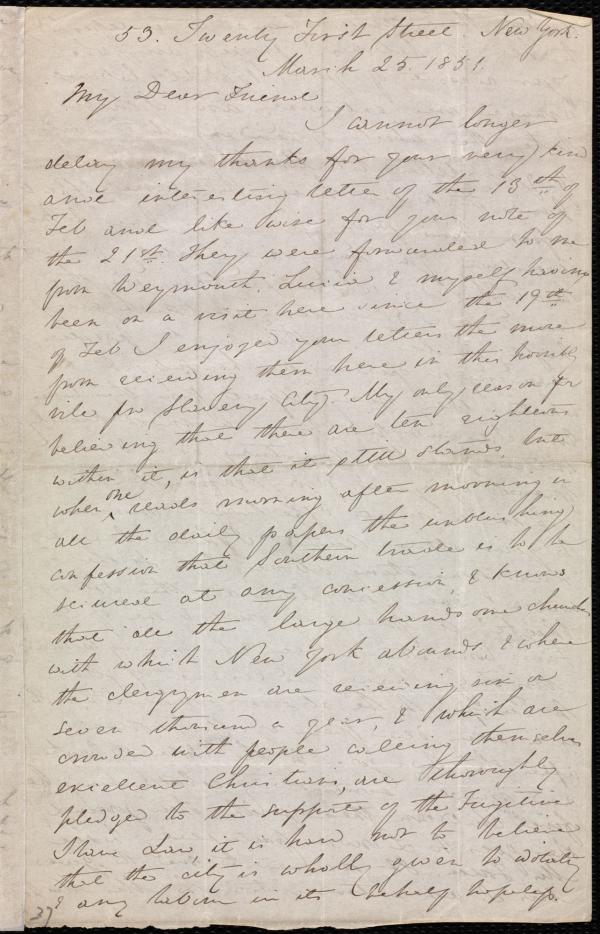 53. Twenty First Street. New York.
March 25. 1851.
My Dear Friend
I cannot longer
delay my thanks for your very kind
and interesting letter of the 13th of
Feb and like wise for your note of
the 21st. They were forwarded to me
from Weymouth, Lucia & myself having
been on a visit here since the 19th
of Feb I enjoyed your letters the more
from receiving them here in this horribly
vile pro Slavery City. My only reason for
believing that there are ten righteous
within it, is that it still stands, but
when one reads morning after morning in
all the daily papers the unblushing
confession that Southern trade is to be
secured at any concession, & knows
that all the large handsome churches
with which New York abounds & where
the clergymen are receiving six or
seven thousand a year, & which are
crowded with people calling themselves
excellent Christians, are thoroughly
pledged to the support of the Fugitive
Slave Law, it is hard not to believe
that the city is wholly given to idolatry
& any labour in its behalf hopeless.
37